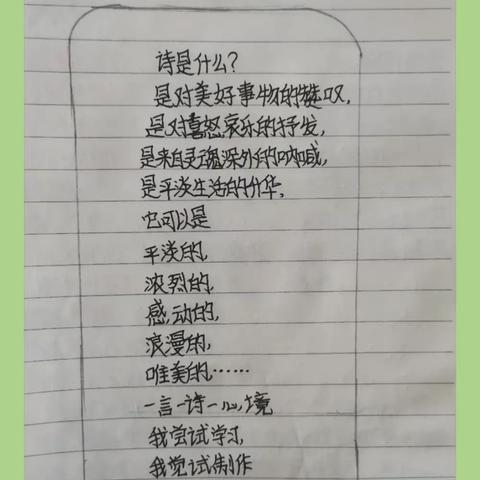 诗是什么?
是对美好事物的赞叹,
是对喜怒哀乐的抒发,
是来自灵魂深处的呐喊,
是平淡生活的升华,
它可以是
平淡的,
浓烈的,
感动的,
浪漫的,
唯美的……
一言一诗一心境
我尝试学习,
我尝试制作